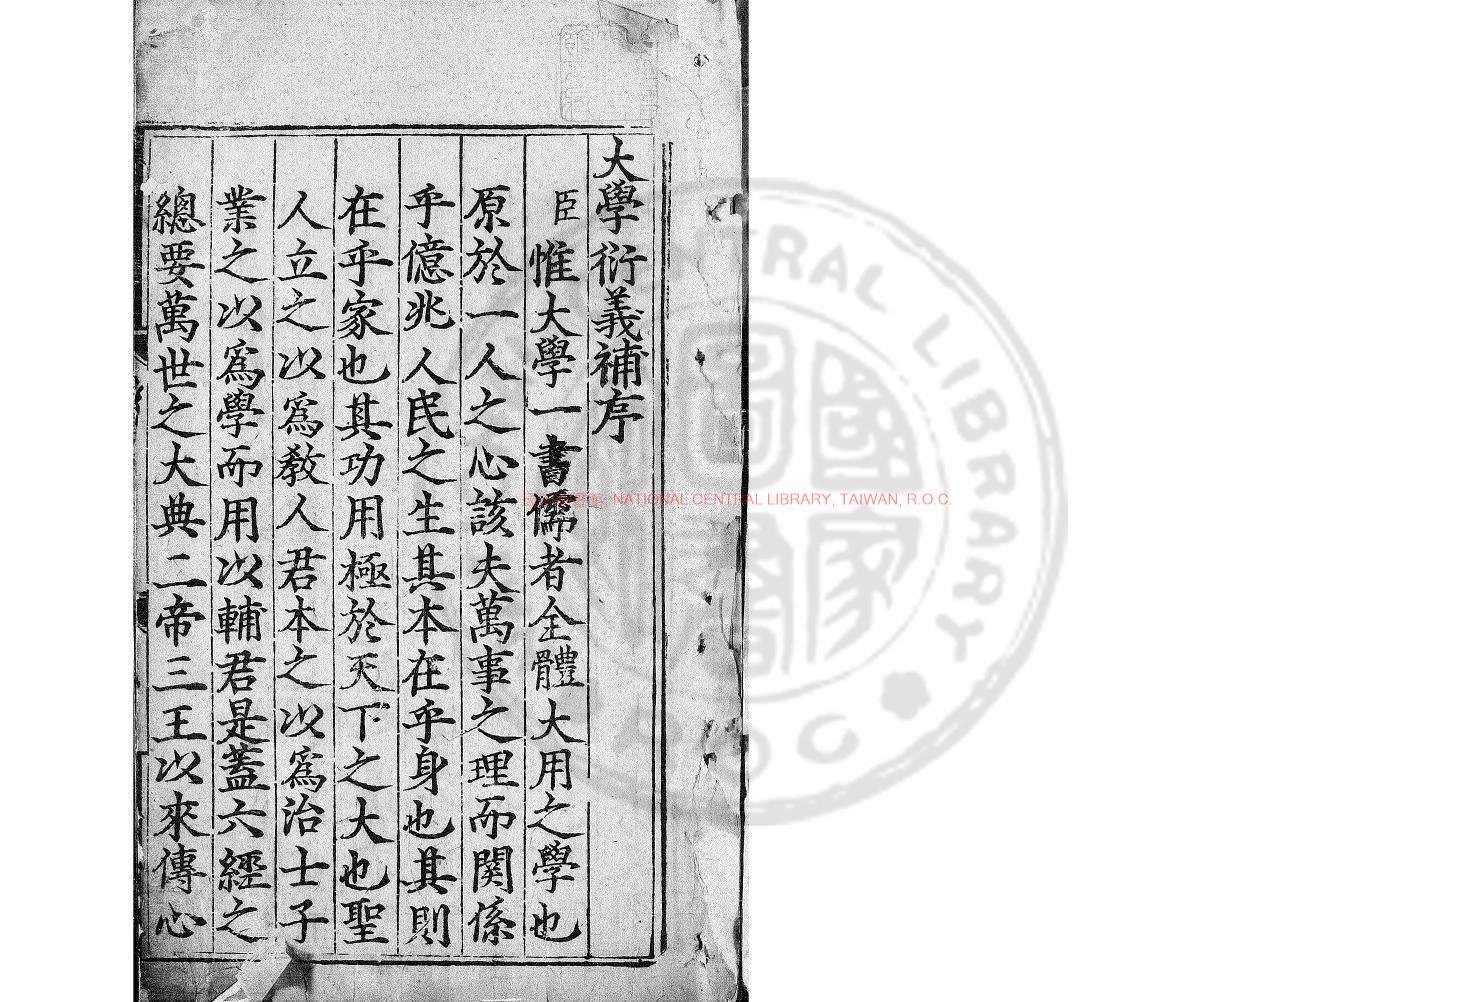 大學衍義補序
臣惟大學一書儒者全體大用之學也
原於一人之心該夫萬事之理而関係
乎億兆人民之生其本在乎身也其則
在乎家也其功用極於天下之大也聖
人立之以爲教人君本之以爲治士子
業之以爲學而用以輔君是蓋六經之
總要萬世之大典二帝三王以來傳心
NATIONAL CENTRAL LIBRARY, TAIWAN, R.O.C.
CENTRAL LIBRARY
R.O.C